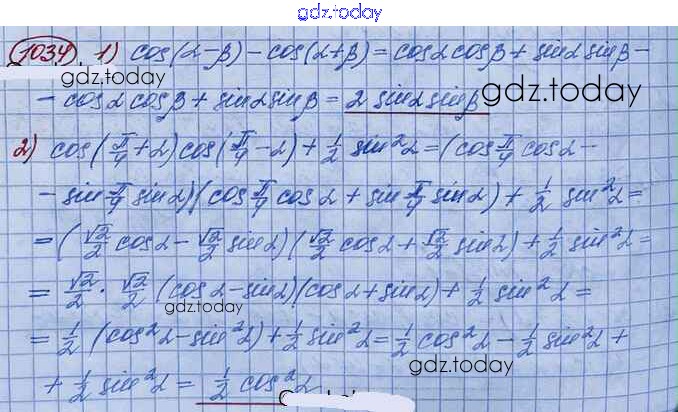 gdz.today
1034 1) cos(α-β) - cos(α+β) = cosα cosβ + sinα sinβ -
gdz.today
- cosα cosβ + sinα sinβ = 2 sinα sinβ
gdz.today
2) cos(π/4+α) cos(π/4-α) + 1/2 sin²α = (cos π/4 cosα -
- sin π/4 sinα)(cos π/4 cosα + sin π/4 sinα) + 1/2 sin²α =
= (√2/2 cosα - √2/2 sinα)(√2/2 cosα + √2/2 sinα) + 1/2 sin²α =
= √2/2 · √2/2 (cosα - sinα)(cosα + sinα) + 1/2 sin²α =
gdz.today
= 1/2 (cos²α - sin²α) + 1/2 sin²α = 1/2 cos²α - 1/2 sin²α +
gdz.today
+ 1/2 sin²α = 1/2 cos²α